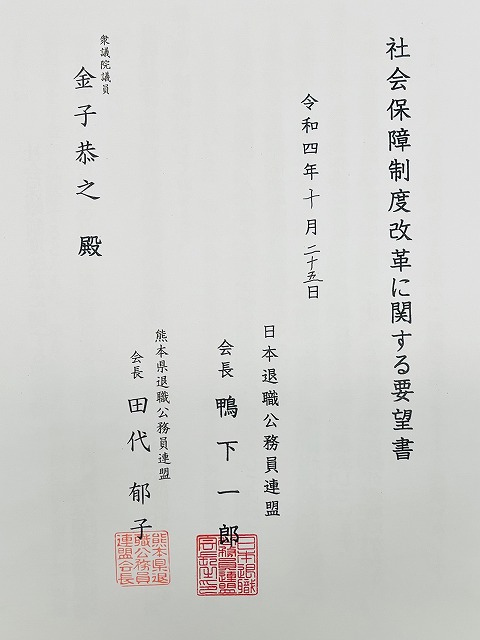 社会保障制度改革に関する要望書
令和四年十月二十五日
日本退職公務員連盟
会長 鴨下一郎
熊本県退職公務員連盟
会長 田代郁子
衆議院議員
金子恭之 殿
熊本県退
職公務員
連盟会長
日本退職
公務員連盟
会長之印